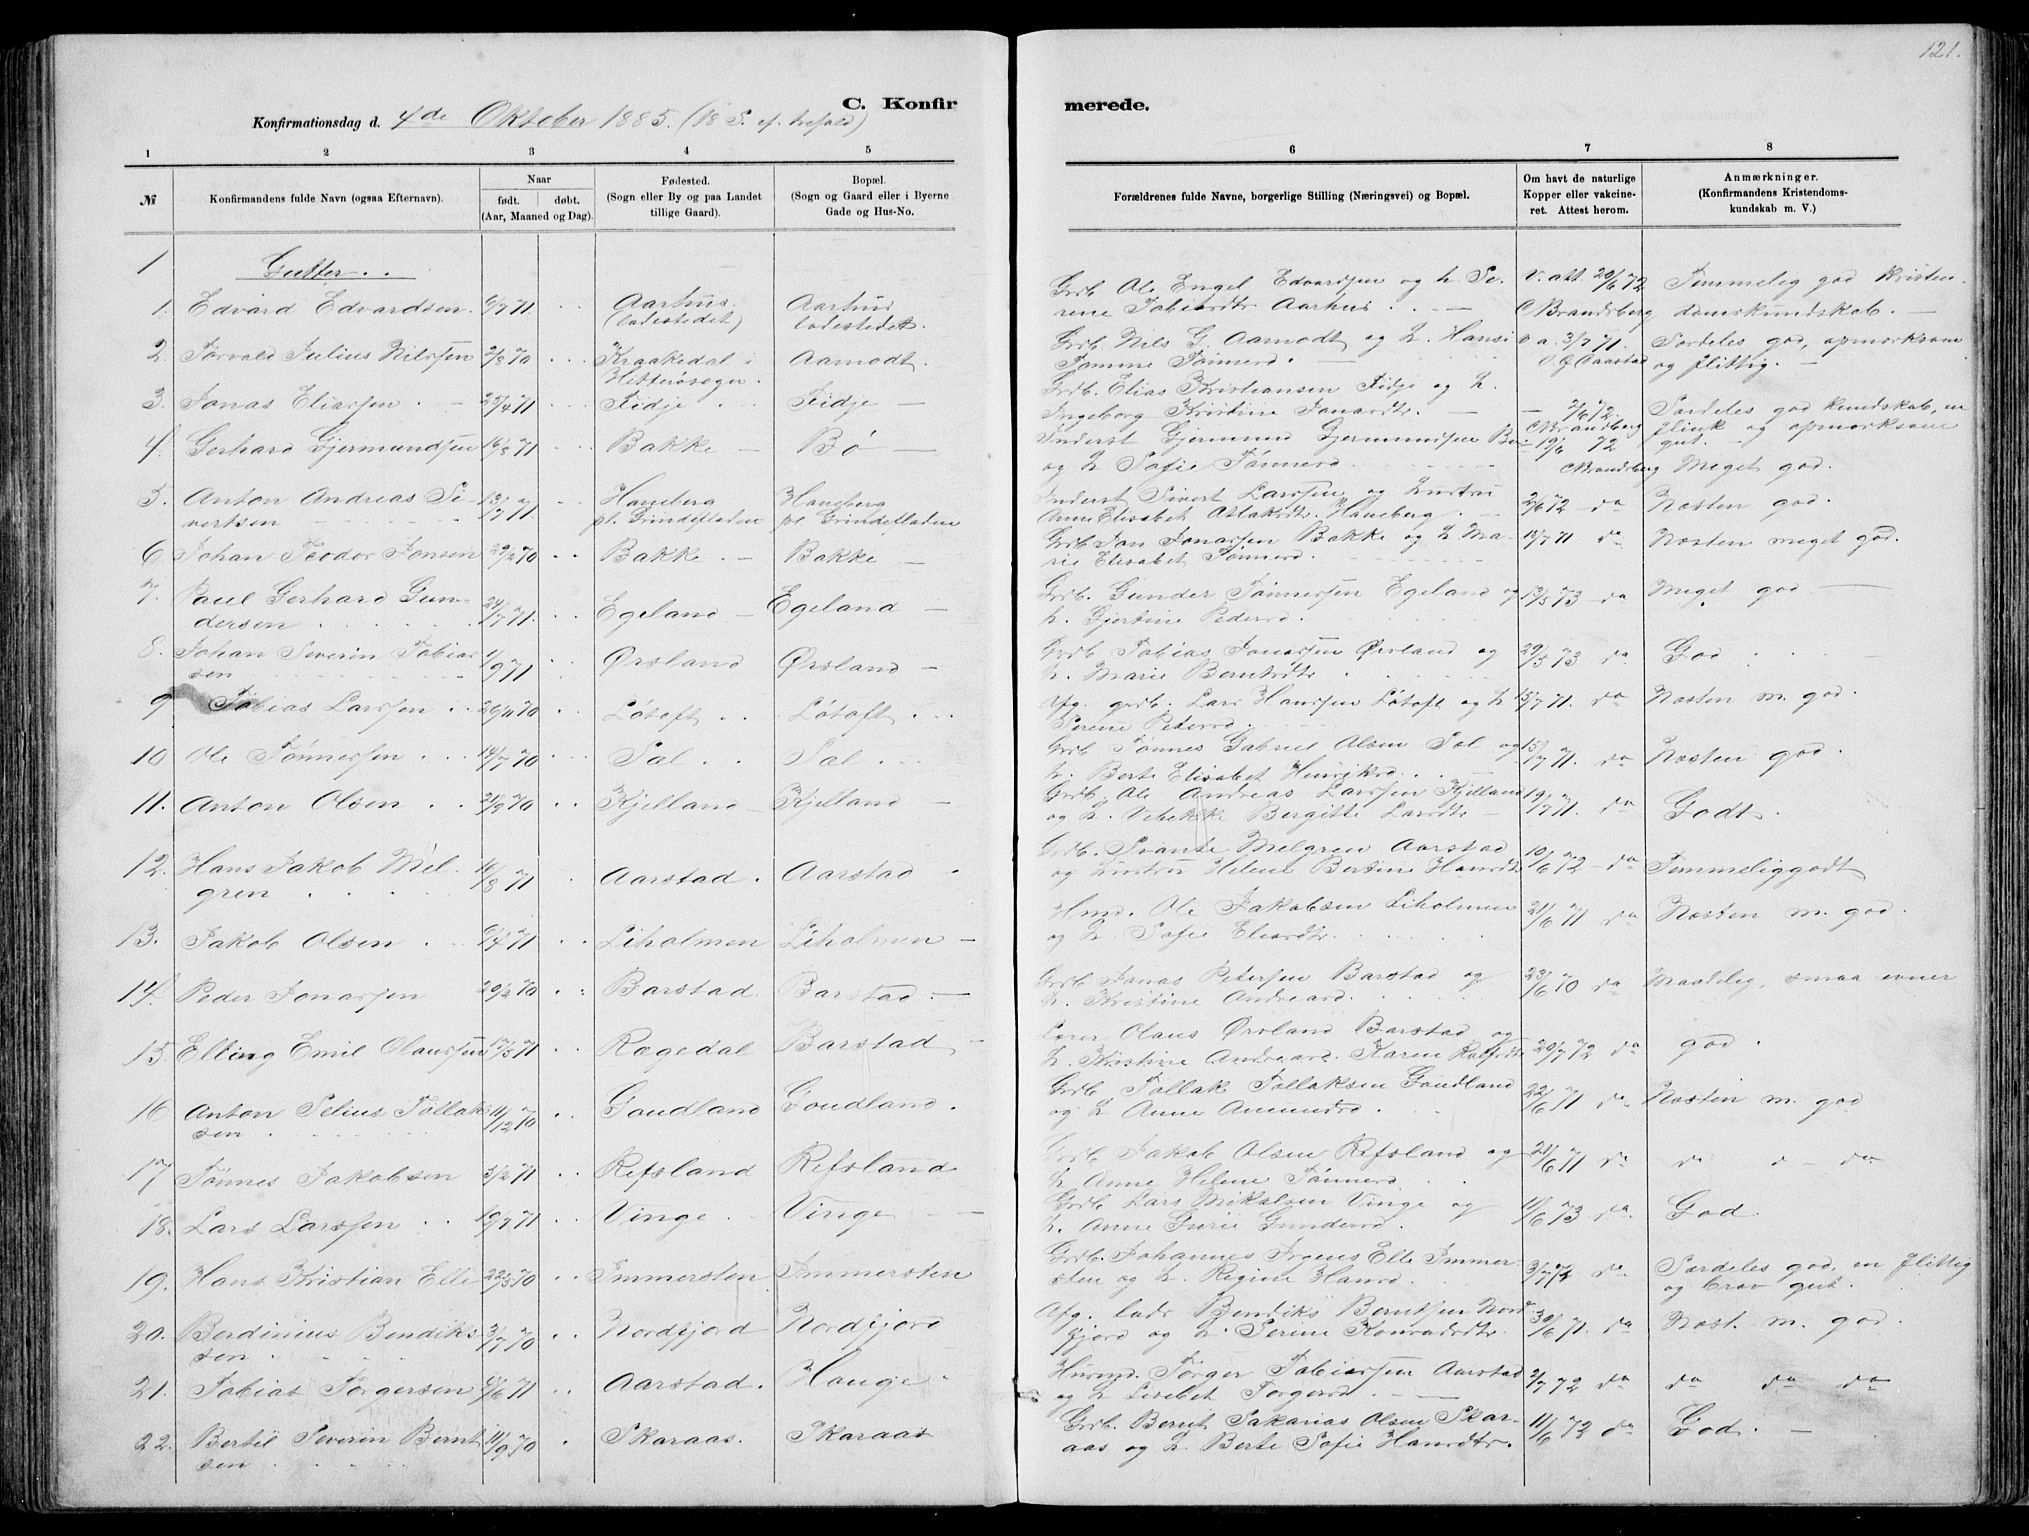 121.
C. Konfir
merede.
Konfirmationsdag d. 4de Oktober 1885. (18 S. ef. trefold)
1 2 3 4 5
6 7 8
№
Konfirmandens fulde Navn (ogsaa Efternavn).
Naar
født. døbt.
(Aar, Maaned og Dag).
Fødested.
(Sogn eller By og paa Landet
tillige Gaard).
Bopæl.
(Sogn og Gaard eller i Byerne
Gade og Hus-No.
Forældrenes fulde Navne, borgerlige Stilling (Næringsvei) og Bopæl.
Om havt de naturlige
Kopper eller vakcine-
ret. Attest herom.
Anmærkninger.
(Konfirmandens Kristendoms-
kundskab m. V.)
1 Gutter
1. Edvard Edvardsen 9/7 71 Aarhus (ladestedet) Aarhus ladestedet.
Grdb. Ole Engel Edvardsen og h. Se-
rene Tobiasdtr Aarhus
v. att. 20/6 72
C Brandsberg
Temmelig god kristen-
domskundskab.
2. Torvald Julius Nilssen 2/8 70 Kraakedal i Hitterøsogn. Aamodt.
Grdb. Nils G. Aamodt og h. Hansi-
Tomme Tønnesd.
v a. 3/7 71.
O G Aarstad
Særdeles god, opmærksom
og flittig.
3. Jonas Eliassen 25/4 71 Fidje Fidje
Grdb. Elias Kristiansen Fidje og h.
Ingeborg Kristine Jonasdtr.
2/6 72.
C Brandsberg
Særdeles god kundskab, en
flink og opmærksom
gut.
4. Gerhard Gjermundsen 16/8 71 Bakke Bø
Inderst Gjermund Gjermundsen Bø
og h Sofie Tønnesd.
19/6 72
C Brandsberg
Meget god.
5. Anton Andreas Si-
vertsen 13/7 71 Haneberg pl. Grindefladen Haneberg pl. Grindefladen
Inderst Sivert Larssen og hustru
Anne Elisabet Atlaksdtr. Haneberg.
2/6 72 da
Næsten god.
6. Johan Teodor Jonsen 29/2 70 Bakke Bakke
Grdb Jon Jonassen Bakke og h Ma-
rie Elisabet Tønnesd
13/7 71 da
Næsten meget god.
7. Paul Gerhard Gun-
dersen 24/7 71. Egeland Egeland
Grdb. Gunder Tønnessen Egeland og
h. Gjertine Pedersd.
13/5 73 da
Meget god
8. Johan Severin Tobias
sen 1/9 71 Ørsland Ørsland
Grdb Tobias Jonassen Ørsland og
h. Marie Berntsdtr.
29/5 73 da
God
9 Tobias Larssen 26/11 70 Løtoft Løtoft
Afg. grdb. Lars Hanssen Løtoft og h
Serene Pedersd.
15/7 71. da
Næsten m. god
10 Ole Tønnessen 14/7 70 Sæl Sæl
Grdb Tønnes Gabriel Olsen Sæl og
h. Berte Elisabet Henriksd.
15/7 71. da
Næsten god.
11. Anton Olsen 21/9 70 Kjelland Kjelland
Grdb. Ole Andreas Larssen Kjelland
og h. Vebekke Bergitte Larsdtr
19/7 71. da
Godt.
12. Hans Jakob Mel-
gren 16/8 71 Aarstad. Aarstad
Grdb. Svante Melgren Aarstad
og hustru Helene Bertine Hansdtr
10/6 72 da
Temmelig godt
13. Jakob Olsen 9/4 71 Liholmen Liholmen
Hmd. Ole Jakobsen Liholmen
og h Sofie Eliasdtr.
21/6 71 da
Næsten m. god.
14. Peder Jonassen 20/2 70 Barstad Barstad
Grdb Jonas Petersen Barstad og
h. Kristine Andreasd.
23/6 70 da
Maadelig, smaa evner
15 Elling Emil Olaussen 17/5 71 Rægedal Barstad
Lærer Olaus Ørsland Barstad og
h. Kristine Andreasd. Karen Rolfsdtr
29/7 72 da
god.
16 Anton Selius Tollak
sen 11/12 70 Goudland Goudland.
Grdb Tollak Tollaksen Goudland
og h Anne Amundsd.
22/6 71 da
Næsten m. god
17 Tønnes Jakobsen 3/2 71 Refsland Refsland
Grdb Jakob Olsen Refsland og
h Anne Helene Tønnesd
21/6 71 da
da d da
18. Lars Larssen 19/7 71 Vinge Vinge
Grdb Lars Mikalsen Vinge og
h. Anne Gurie Gundersd.
11/6 73 da.
God.
19. Hans Kristian Elle 22/5 70 Immersten Immersten
Grdb. Johannes Irgens Elle Immer-
sten og h. Regine Hansd.
3/7 72 da
Særdeles god, en flittig
og brav gut.
20. Berdinius Bendiks
sen 3/7 70 Nordfjord Nordfjord
Afg. lods Bendiks Berntsen Nord-
fjord og h. Serene Konradsdtr.
30/6 71. da
Næst. m. god.
21. Tobias Torgersen 9/6 71 Aarstad. Hauge
Husmd. Torger Tobiassen Aarstad
og h Lisebet Torgersd.
2/7 72 da
da da da
22. Bertil Severin Bernt
sen 11/9 70 Skaraas. Skaraas
Grdb. Bernt Sakarias Olsen Skar-
aas og h. Berte Sofie Hansdtr.
11/6 73 da
God.